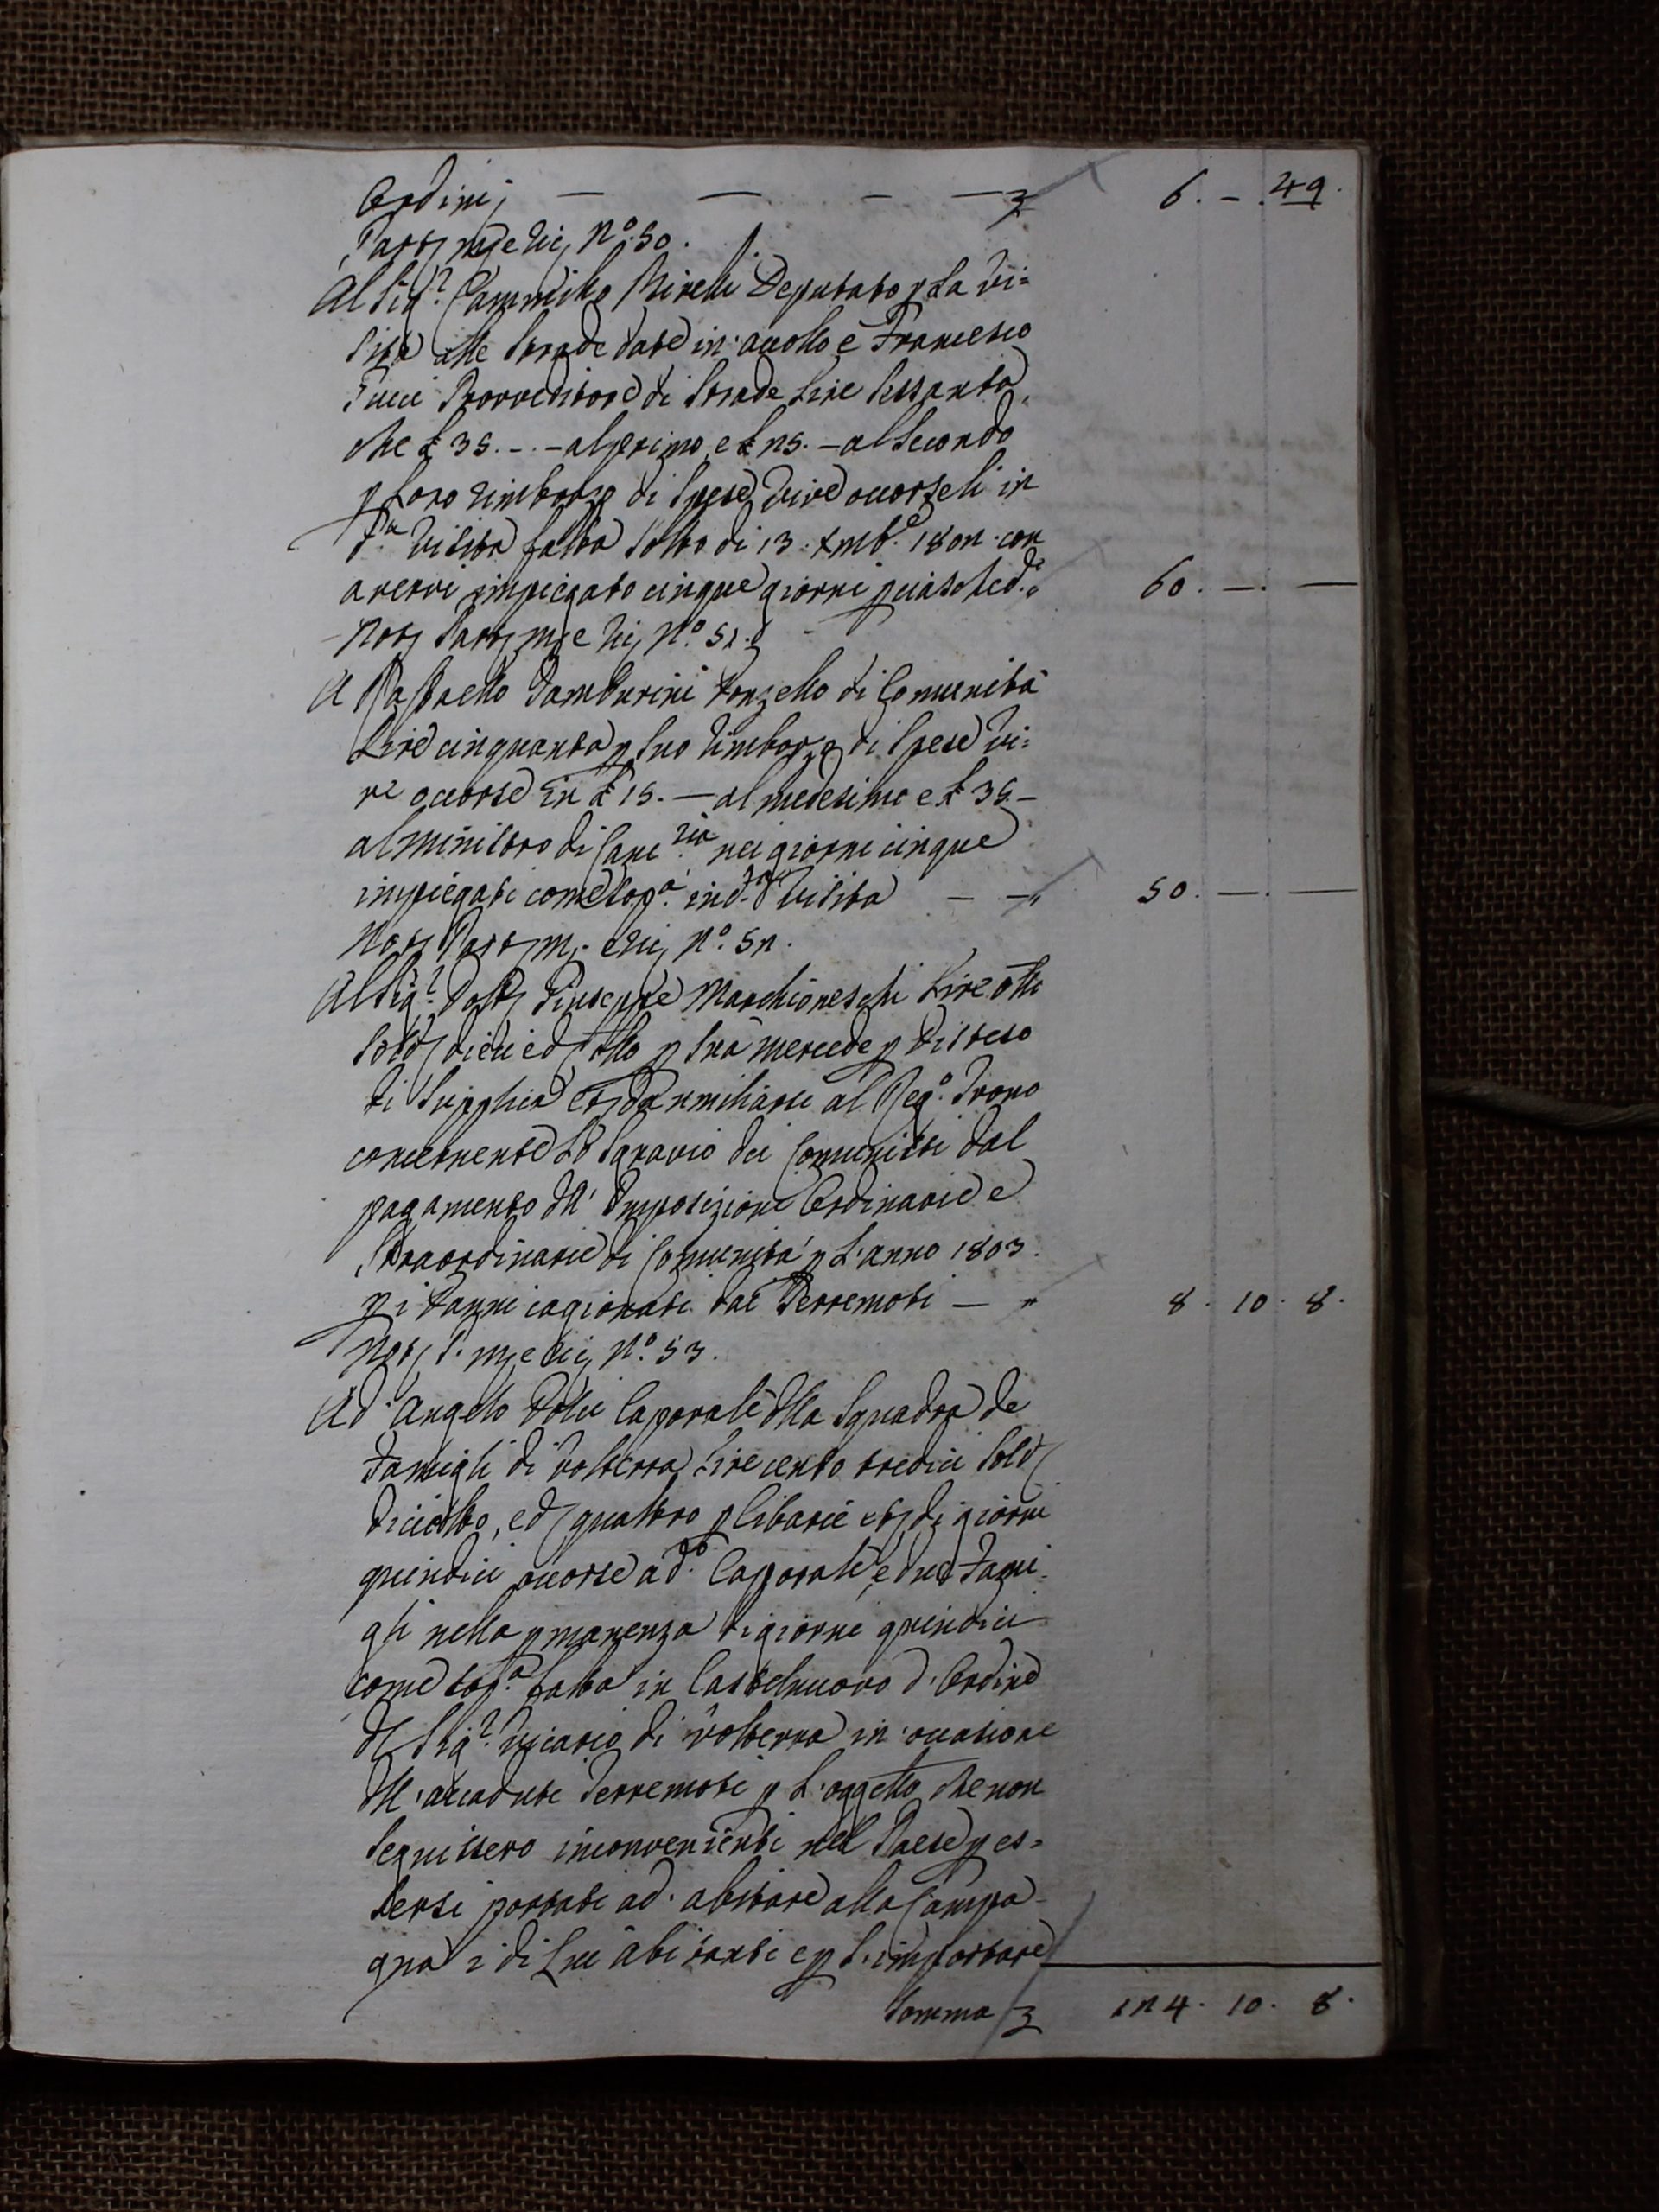 Ordini, — — — — 6. — . 49.
Part, m, e ric, N.° 50.
Al Sig.r Cammillo Deputato p. la Vi=
sita alle Strade date in accollo e Francesco
Provveditore di Strade Lire Sessanta,
che £ 35. - . - al primo, e £ 25. - al Secondo
p. loro rimborzo di Spese vive occorseli in
d.a Visita fatta sotto di 13. Xmb.e 1802. con
avervi impiegato cinque giorni p. ciasched.° 60. — . —
Not, Part, m, e ric, N.° 51.
A Raffaello Tamburini Donzello di Comunità
Lire cinquanta p. Suo rimborzo di Spese vi=
ve occorse in £ 15. — al medesimo e £ 35. —
al ministro di Canc.ria nei giorni cinque
impiegati come sop.a in d.a Visita — — 50. — . —
Not, Part, m, e ric, N.° 52.
Al Sig.r Dott, Giuseppe Marchioneschi Lire otto
Sold, dieci e d, otto p. Sua mercede p. disteso
di Supplica et, da umiliarsi al Reg.° Trono
concernente lo Sgravio dei Comunisti dal
pagamento dll' Imposizioni Ordinarie e
Straordinarie di Comunità p. L'anno 1803.
p. i danni cagionati dai Terremoti — 8. 10. 8.
Not, P. m, e ric, N.° 53.
Ad Angelo Dolci Caporale dlla Squadra de
Famigli di Volterra Lire cento tredici Sold,
diciotto, e d, quattro p. Cibarie et, di giorni
quindici occorse a d.to Caporale, e due Fami=
gli nella p.manenza di giorni quindici
come sop.a fatta in Castelnuovo d'Ordine
dl Sig.r Vicario di Volterra in occasione
dll'accaduti Terremoti p. L'oggetto che non
Seguissero inconvenienti nel Paese p. es=
sersi portati ad abitare alla Campa=
gna i di Lui abitanti e p. l'importare
Somma 124. 10. 8.